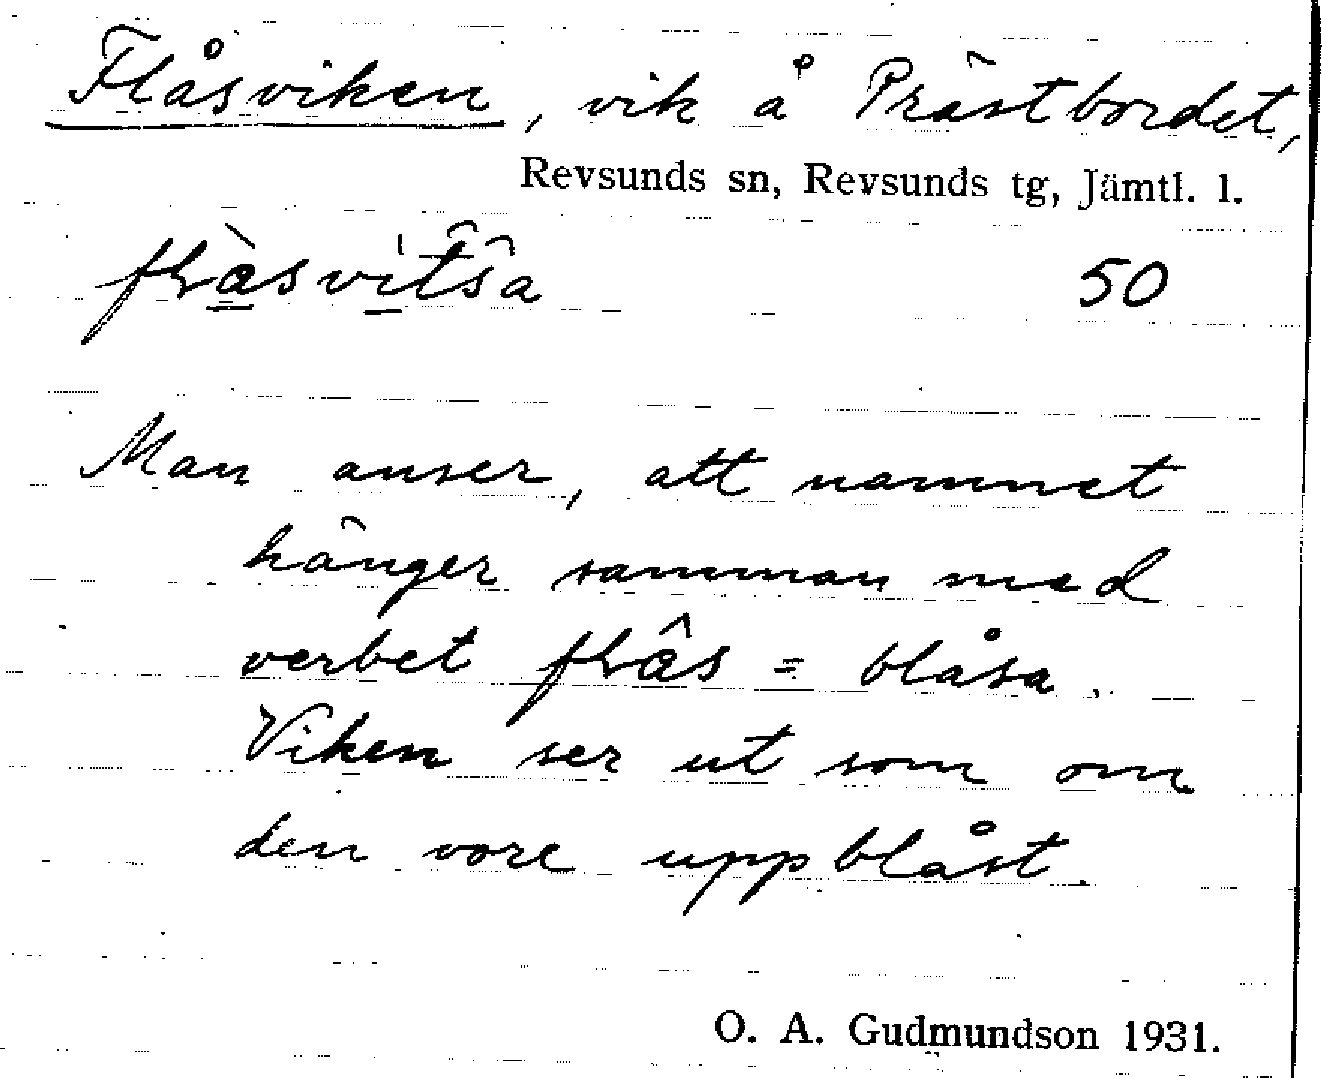 Flåsviken, vik å Prästbordet,
Revsunds sn, Revsunds tg, Jämtl. l.
50
Man anser, att namnet
hänger samman med
verbet = blåsa.
Viken ser ut som om
den vore uppblåst.
O. A. Gudmundson 1931.